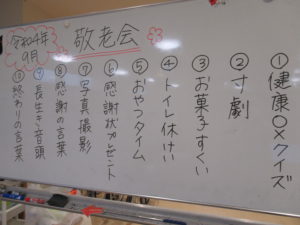 令和4年
9月
敬老会
①健康〇×クイズ
②寸劇
③お菓子すくい
④トイレ休けい
⑤おやつタイム
⑥感謝状プレゼント
⑦写真撮影
⑧感謝の言葉
⑨長生き音頭
⑩終わりの言葉